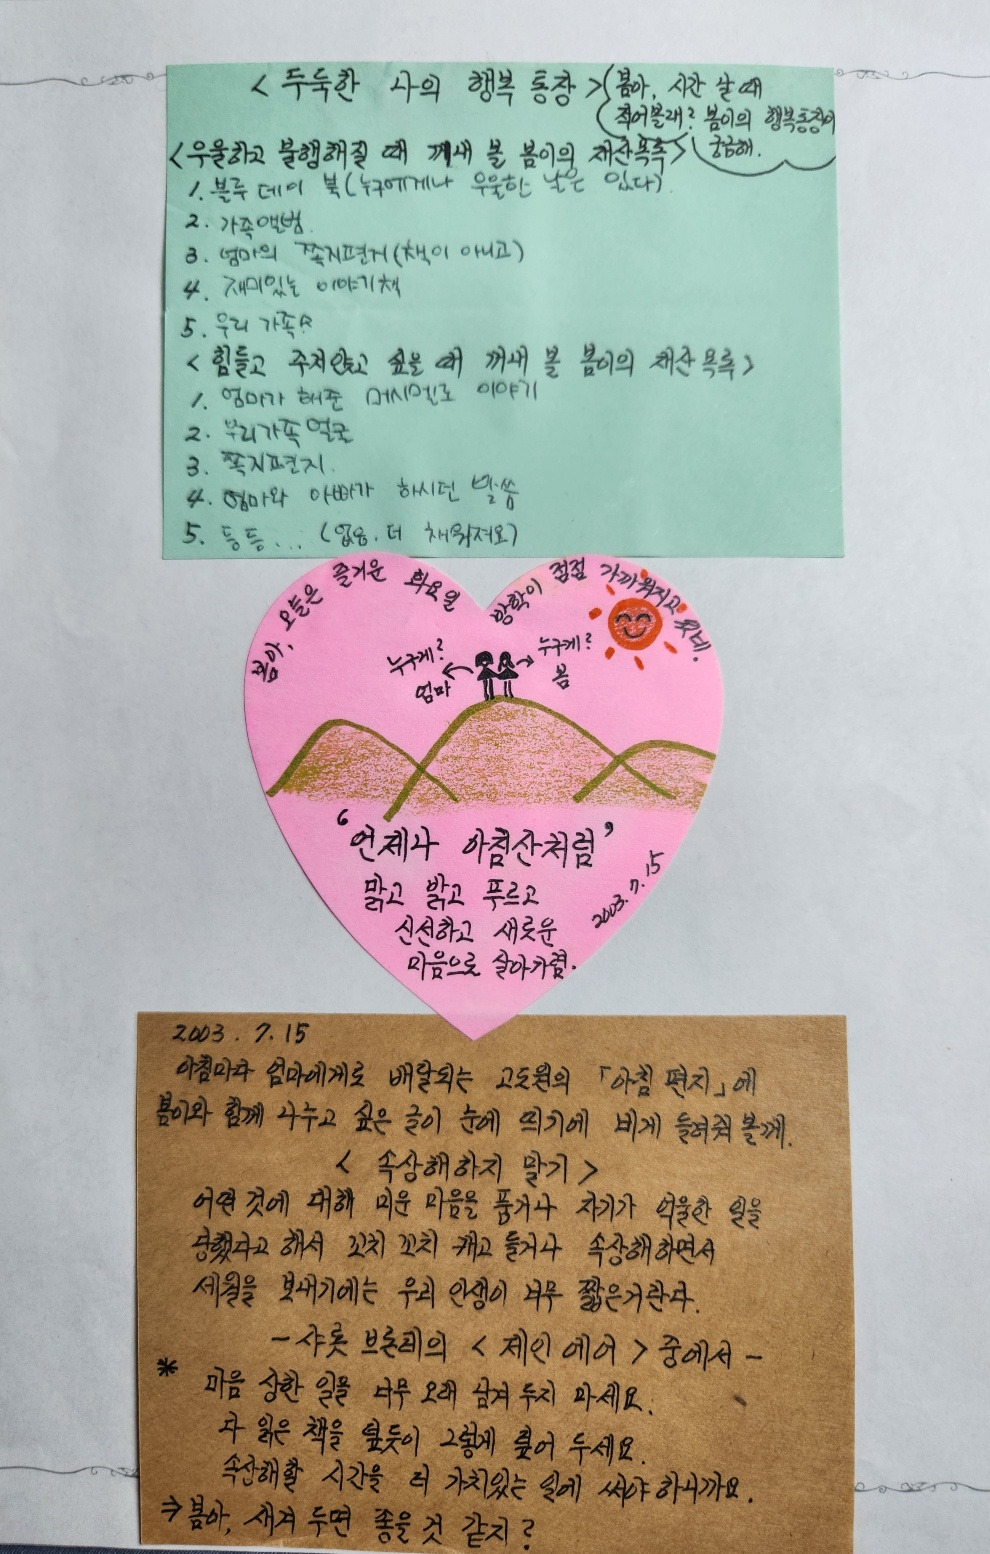 <두둑한 나의 행복 통장>
봄아, 시간 날 때
적어볼래? 봄이의 행복통장이
궁금해.
<우울하고 불행해질 때 꺼내 볼 봄이의 재산목록>
1. 블루 데이 북(누구에게나 우울한 날은 있다)
2. 가족앨범.
3. 엄마의 쪽지편지(책이 아니고)
4. 재미있는 이야기책
5. 우리 가족
<힘들고 주저앉고 싶을 때 꺼내 볼 봄이의 재산목록>
1. 엄마가 해준 머시멜로 이야기
2. 우리가족 얼굴
3. 쪽지편지.
4. 엄마와 아빠가 하시던 말씀
5. 등등... (없음. 더 채워져요)
봄아, 오늘은 즐거운 화요일 방학이 점점 가까워지고 있네.
누구게?
엄마
누구게?
봄
‘언제나 아침산처럼’
맑고 밝고 푸르고
신선하고 새로운
마음으로 살아가렴.
2003.7.15
2003. 7. 15
아침마다 엄마에게로 배달되는 고도원의 「아침 편지」에
봄이와 함께 나누고 싶은 글이 눈에 띄기에 네게 들려줘 볼께.
<속상해하지 말기>
어떤 것에 대해 미운 마음을 품거나 자기가 억울한 일을
당했다고 해서 꼬치 꼬치 캐고 들거나 속상해하면서
세월을 보내기에는 우리 인생이 너무 짧은거란다.
-샤롯 브론테의 <제인 에어> 중에서-
* 마음 상한 일을 너무 오래 남겨 두지 마세요.
다 읽은 책을 덮듯이 그렇게 덮어 두세요.
속상해할 시간을 더 가치있는 일에 써야 하니까요.
⇒ 봄아, 새겨 두면 좋을 것 같지?